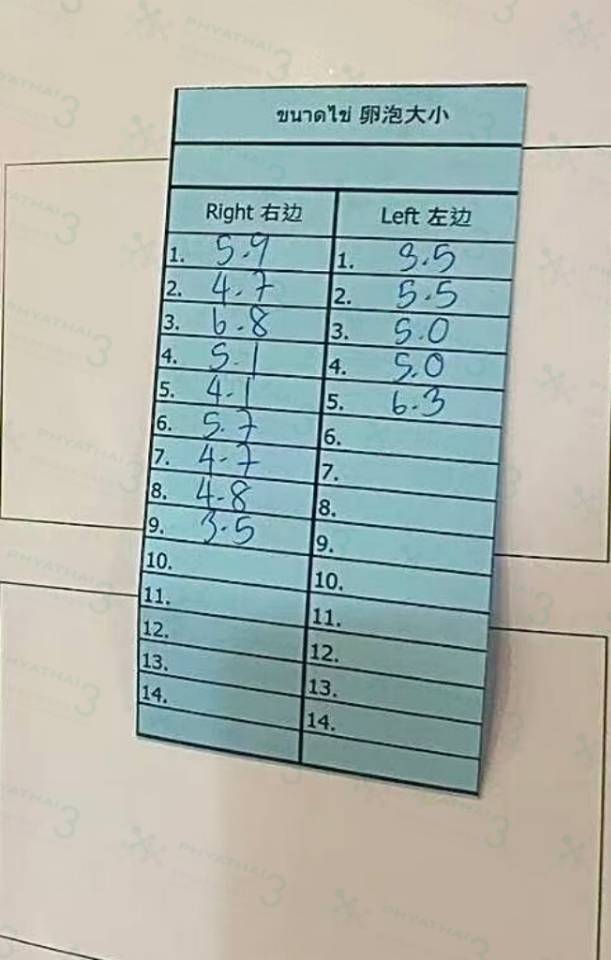 ขนาดไข่ 卵泡大小
Right 右边 Left 左边
1. 5.9 1. 3.5
2. 4.7 2. 5.5
3. 6.8 3. 5.0
4. 5.1 4. 5.0
5. 4.1 5. 6.3
6. 5.7 6.
7. 4.7 7.
8. 4.8 8.
9. 3.5 9.
10. 10.
11. 11.
12. 12.
13. 13.
14. 14.
PHYATHAI 3